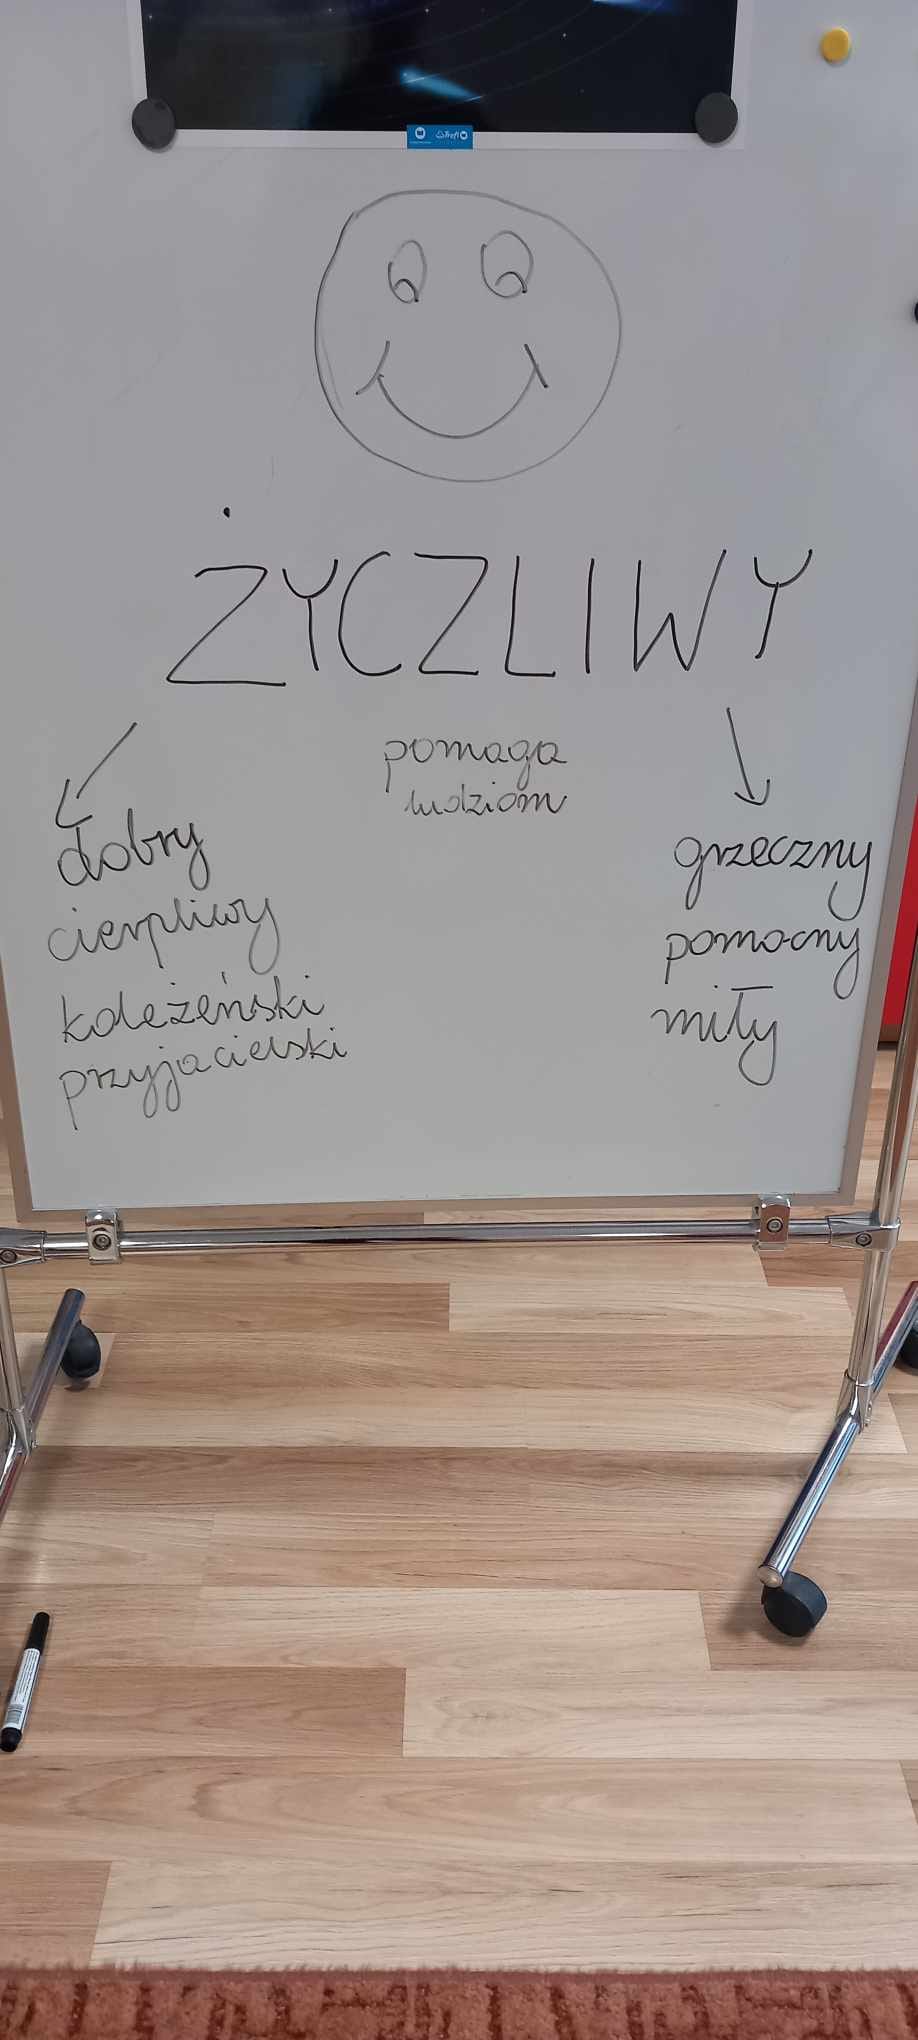 Trefl
ŻYCZLIWY
pomaga
ludziom
dobry
cierpliwy
koleżeński
przyjacielski
grzeczny
pomocny
miły